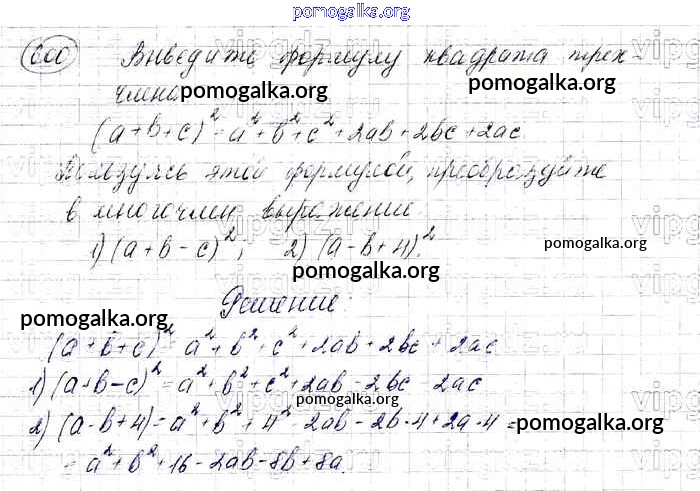 pomogalka.org
600 Выведите формулу квадрата трех-
члена pomogalka.org pomogalka.org
(a+b+c)² = a²+b²+c²+2ab+2bc+2ac.
Пользуясь этой формулой, преобразуйте
в многочлен выражение
1) (a+b-c)²; 2) (a-b+4)². pomogalka.org
pomogalka.org
Решение:
pomogalka.org
(a+b+c)² = a²+b²+c²+2ab+2bc+2ac
1) (a+b-c)² = a²+b²+c²+2ab-2bc-2ac
pomogalka.org
2) (a-b+4)² = a²+b²+4²-2ab-2b·4+2a·4 = pomogalka.org
= a²+b²+16-2ab-8b+8a.